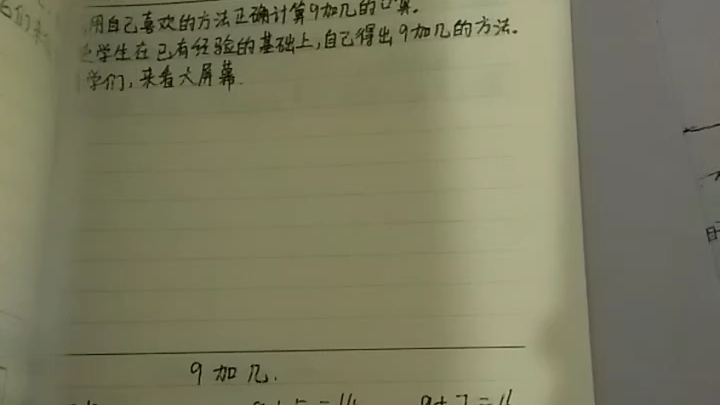 用自己喜欢的方法正确计算9加几的口算。
学生在已有经验的基础上,自己得出9加几的方法。
学们,来看大屏幕.
9加几.